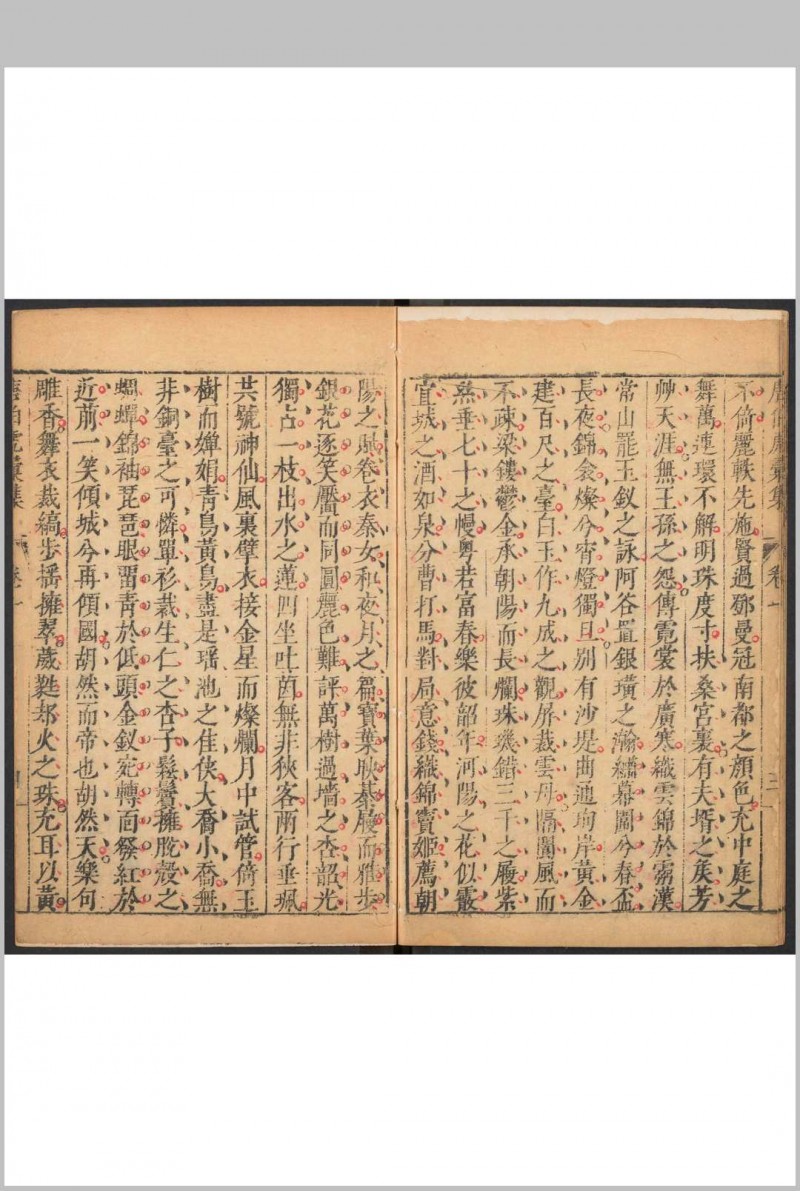 不倚麗軼先施賢過鄧曼冠南都之顏色充中庭之
舞萬連環不解明珠度寸扶桑宮裏有夫壻之矦芳
艸天涯無王孫之怨傳霓裳於廣寒織雲錦於霱漢
常山罷玉釵之詠阿谷置銀璜之瀚繡幕圍兮春盃
長夜錦衾燦兮宵燈獨旦別有沙堤曲通珣岸黃金
建百尺之臺白玉作九成之觀屏裁雲母隔閬風而
不疎梁鏤鬱金承朝陽而長爛珠璣錯三千之履紫
燕垂七十之幔粵若富春樂彼韶年河陽之花似霰
宜城之酒如泉分曹打馬對局意錢織錦竇姬薦朝
陽之風卷衣秦女和夜月之篇寶葉映綦履而雅步
銀花逐笑靨而同圓麗色難評萬樹過墻之杏韶光
獨占一枝出水之蓮四坐吐茵無非狹客兩行垂珮
共號神仙風裏擘衣接金星而燦爛月中試管倚玉
樹而嬋娟青鳥黃鳥盡是瑶池之佳俠大喬小喬無
非銅臺之可憐單衫裁生仁之杏子鬆鬢擁脫殼之
蜩蟬錦袖琵琶眼留青於低頭金釵宛轉面發紅於
近前一笑傾城兮再傾國胡然而帝也胡然天樂句
雕香舞衣裁縞步揺擁翠葳蕤却火之珠充耳以黃
唐伯虎彙集 卷一